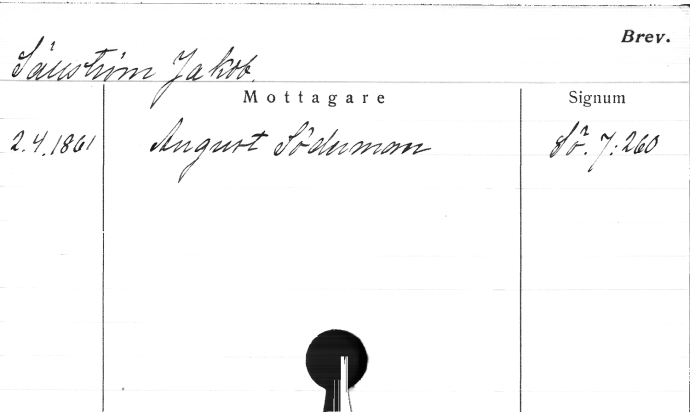 Brev.
Sänström Jakob.
Mottagare Signum
2.4.1861 August Söderman Sö. 7:260